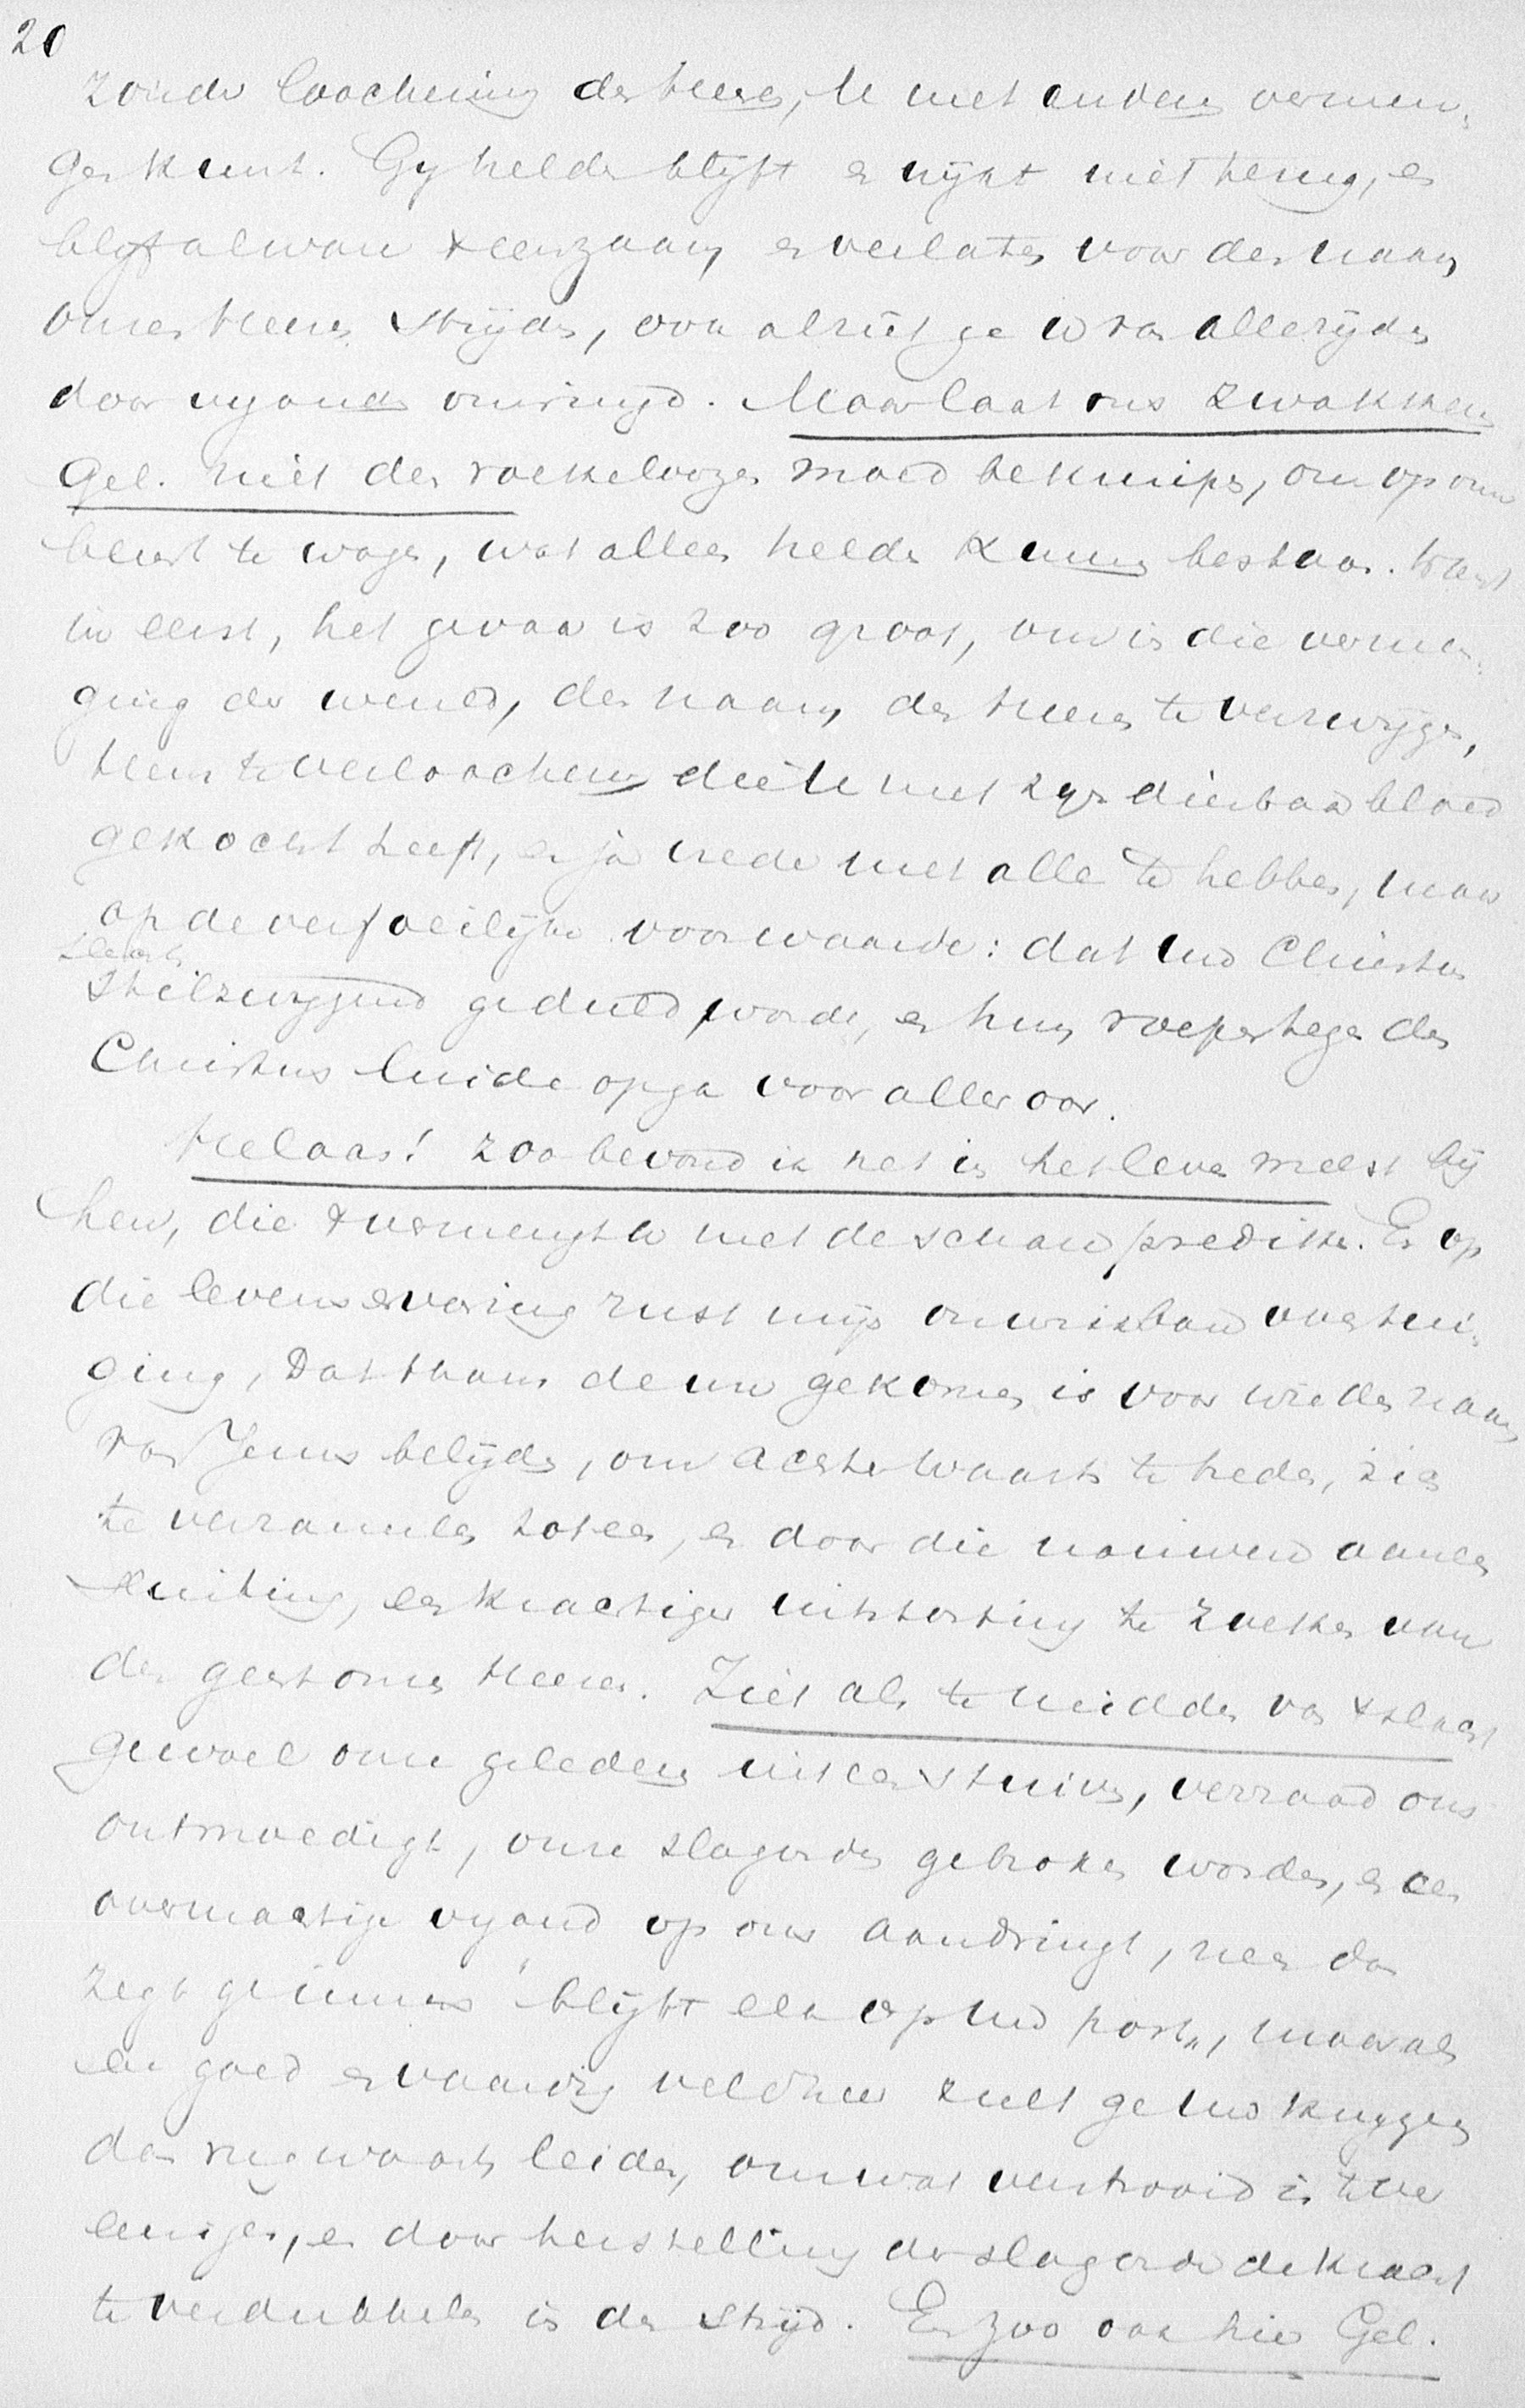 20
zonder loochening des Heeren, U met anderen vermen-
gen kunt. Gy helden blijft en wijkt niet terug, en
blijft al wau 't eenzaam en verlaten voor den naam
onzes Heeren strijden, ook al ziet ge U van alle zijden
door vyanden omringd. Maar laat ons zwakken
Gel. niet den roekeloozen moed bekruipen, om op onze
beurt te wagen, wat alleen helden kunnen bestaan. Want
in eerst, het gevaar is zoo groot, om in die vermen-
ging der wereld, den naam des Heeren te verzwijgen,
Hem te verloochenen die U met zijn dierbaar bloed
gekocht heeft, en ja vrede met allen te hebben, maar
op de verfoeilijke voorwaarde: dat uw Christus
slechts
stilzwijgend geduld worde, en hun roepen tegen den
Christus luide opga voor aller oor.
Helaas! zoo bevond ik het in het leven meest bij
hen, die 't vermengt U met de schare prediken. En op
die levenservaring rust mijn onwrikbare overtui-
ging, dat thans de ure gekomen is voor wie den naam
van Jezus belijden, om achterwaarts te treden, zich
te verzamelen tot een, en door die nauwere aaneen
sluiting, een krachtiger uitstorting te zoeken van
den geest onzes Heeren. Ziet als te midden van 't slacht
gewoel onze gelederen uiteen stuiven, verraad ons
ontmoedigt, onze slagorden gebroken worden, en een
overmachtige vyand op ons aandringt, neen dan
zegt ge immers "blijft elk op uw post", maar als
een goed en vaardig veldheer zult ge uw krijgers
dan rugwaarts leiden, om wat verstrooid is te ver
eenigen, en door herstelling der slagorde de kracht
te verdubbelen in den strijd. En zoo ook hier Gel.